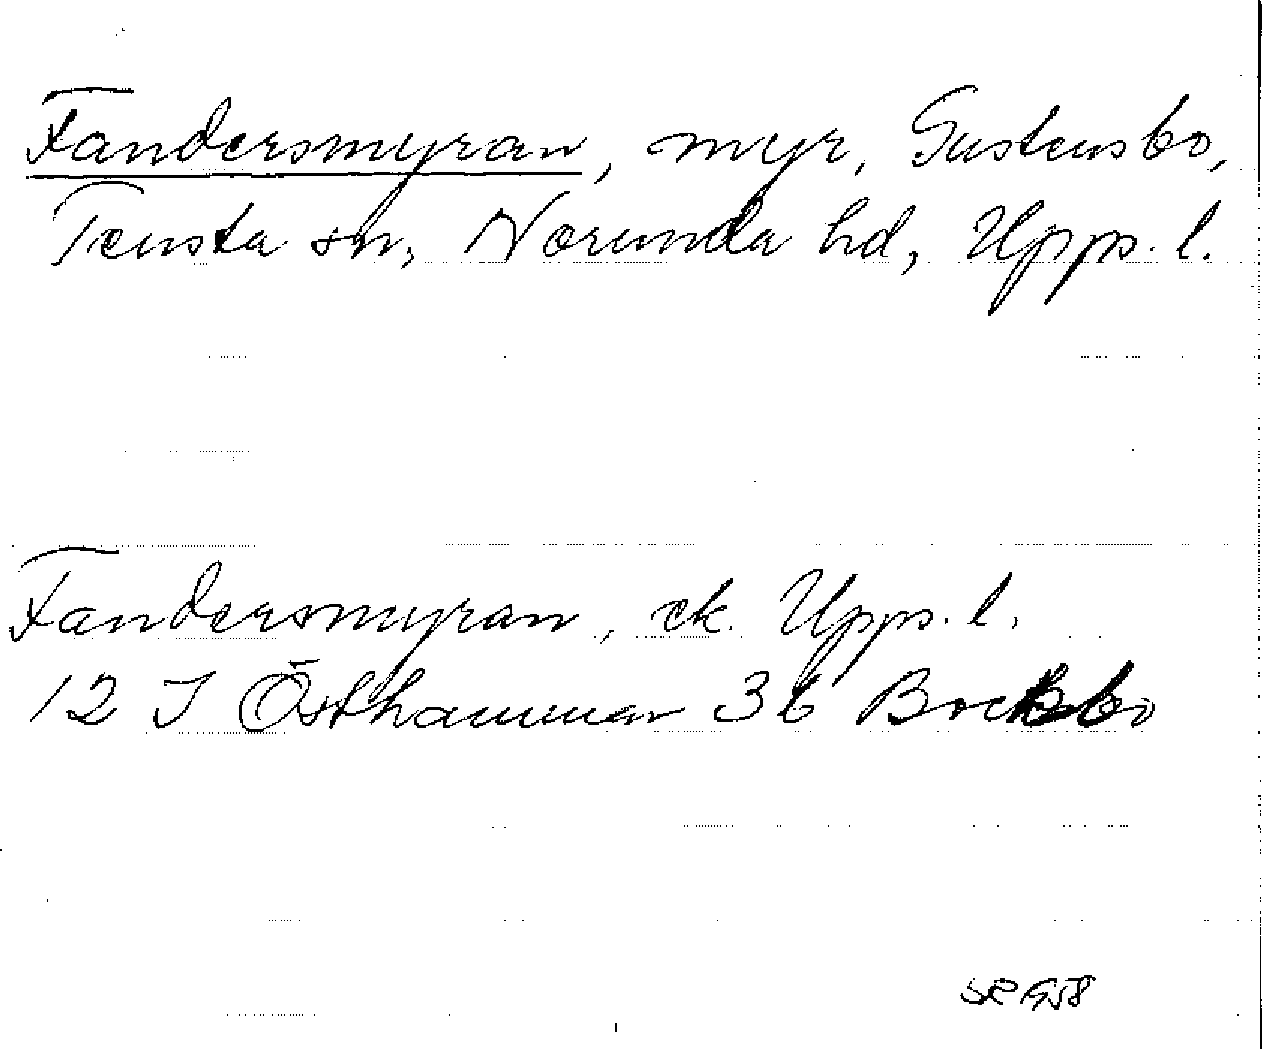 Fandersmyran, myr, Gustensbo,
Tensta sn, Norunda hd, Upps. l.
Fandersmyran, ek. Upps. l.
12 I Östhammar 3b Bockbo
SR 1958